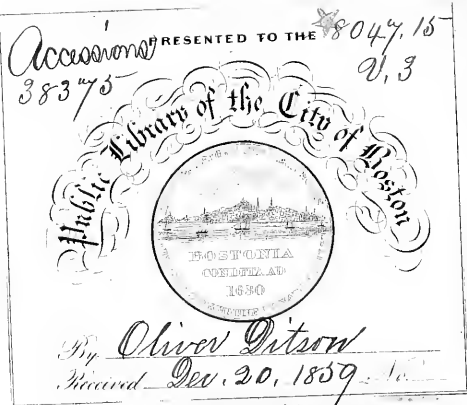 Accessions PRESENTED TO THE 8047.15
38375 V.3
Public Library of the City of Boston
BOSTONIA
CONDITA AD
1630
By Oliver Ditson
Received Dec. 20, 1859 No.